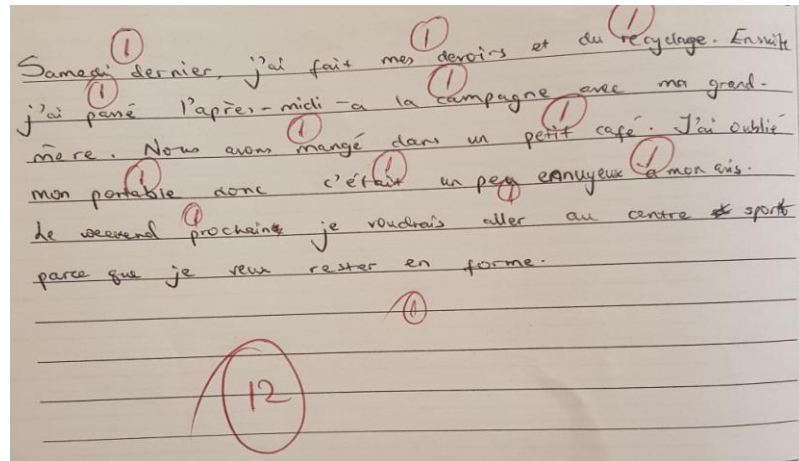 Samedi dernier, j'ai fait mes devoirs et du recyclage. Ensuite
j'ai passé l'après-midi a la campagne avec ma grand-
mère. Nous avons mangé dans un petit café. J'ai oublié
mon portable donc c'était un peu ennuyeux à mon avis.
Le weekend prochain je voudrais aller au centre sport
parce que je veux rester en forme.
12